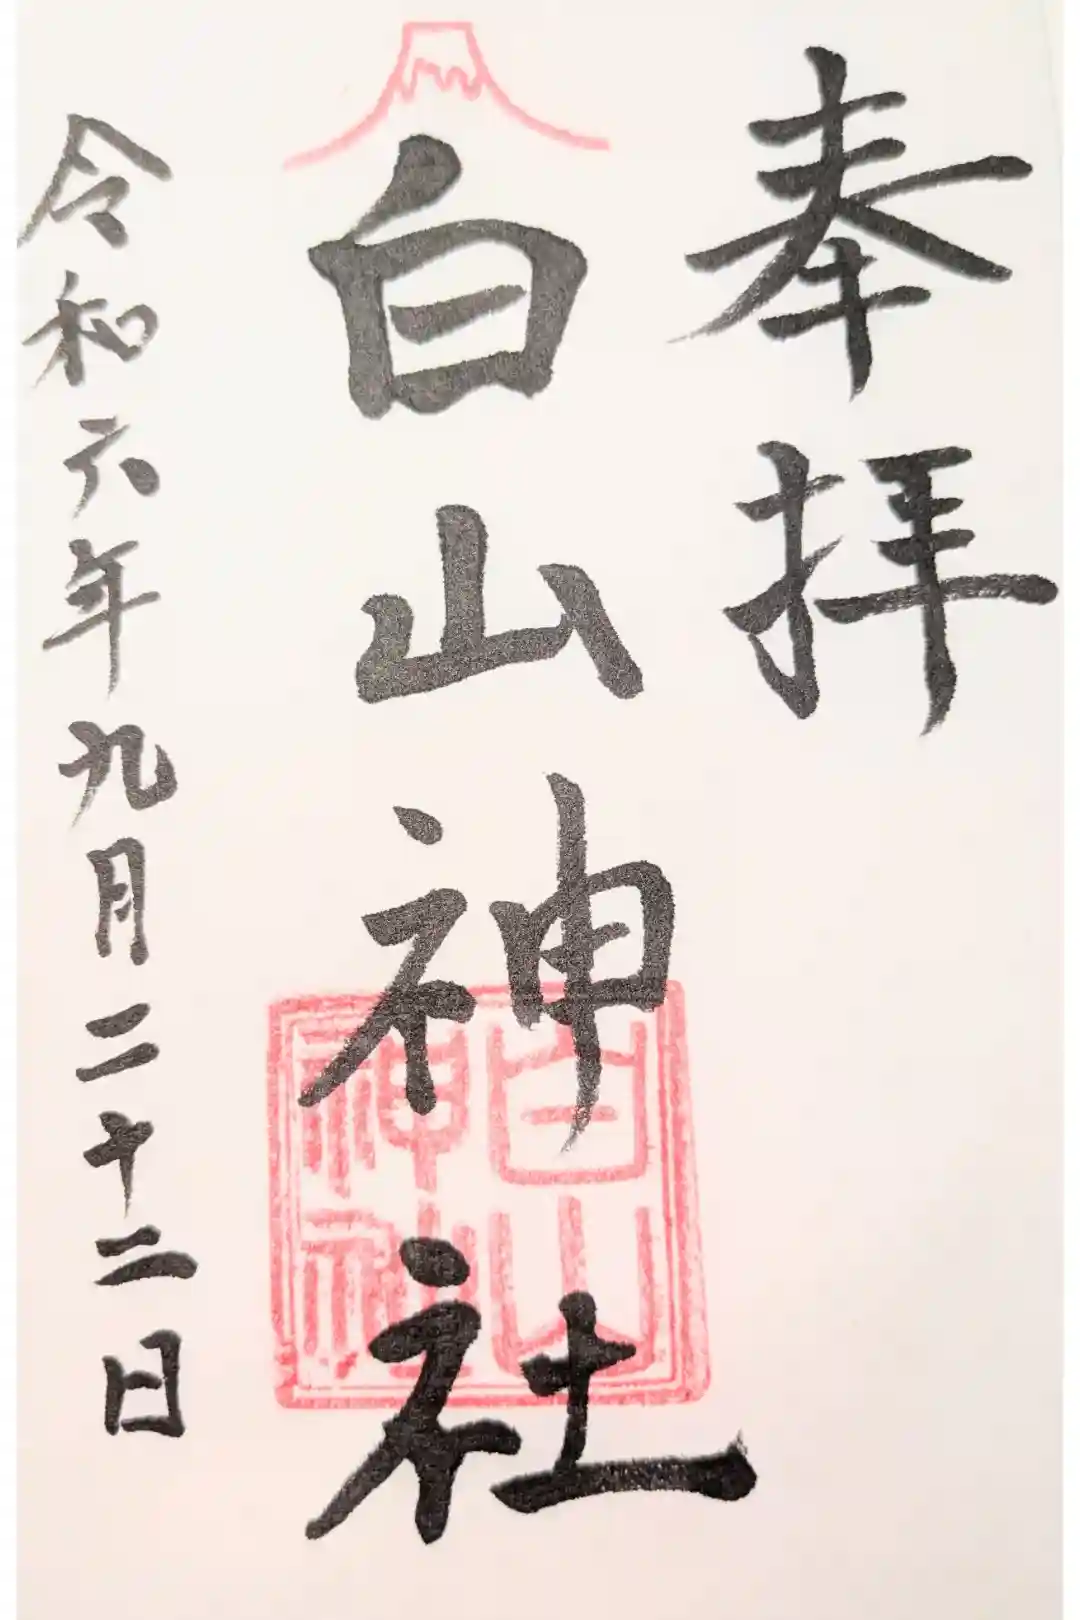 奉拝
白山神社
白山神社
令和六年九月二十二日